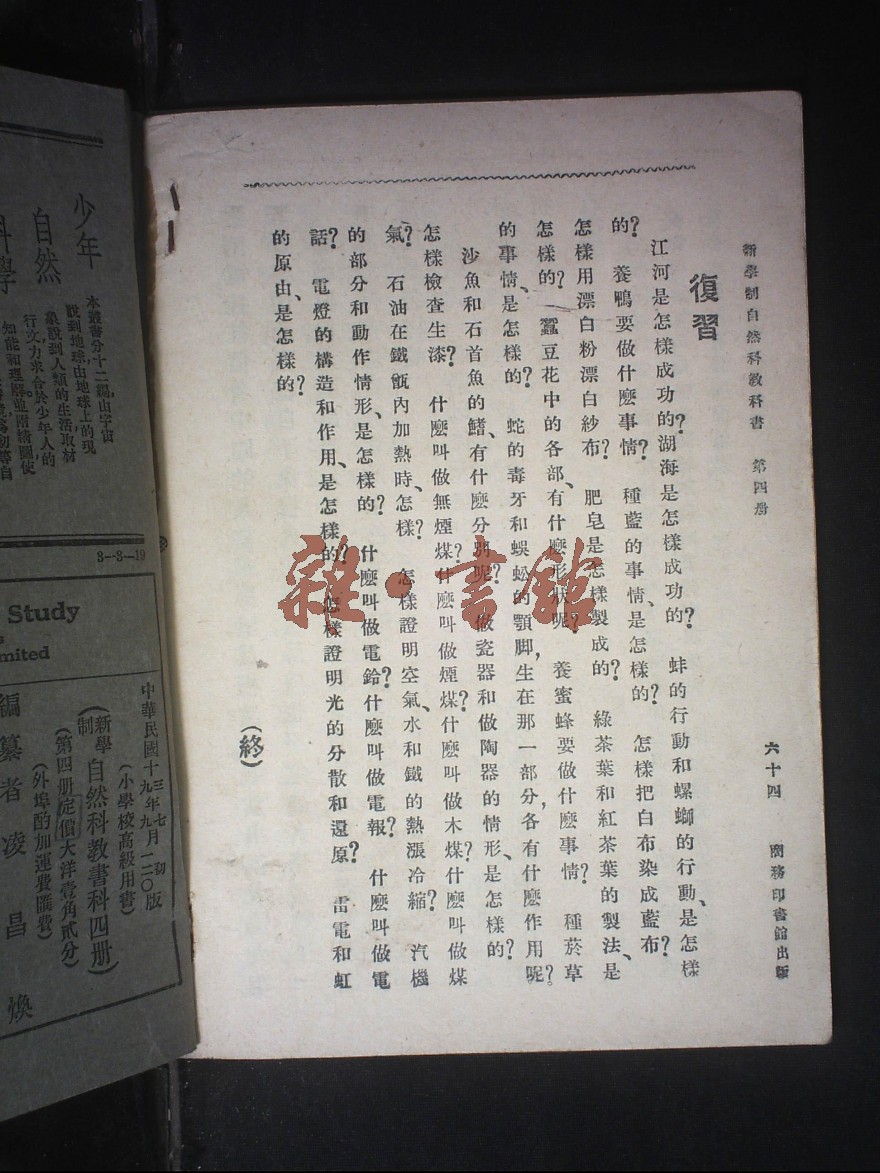 新學制自然科教科書 第四册 六十四 商務印書館出版
復習
江河是怎樣成功的?湖海是怎樣成功的? 蚌的行動和螺螄的行動、是怎樣
的? 養鴨要做什麽事情? 種藍的事情、是怎樣的? 怎樣把白布染成藍布?
怎樣用漂白粉漂白紗布? 肥皂是怎樣製成的? 綠茶葉和紅茶葉的製法、是
怎樣的? 蠶豆花中的各部、有什麽形狀呢? 養蜜蜂要做什麽事情? 種菸草
的事情、是怎樣的? 蛇的毒牙和蜈蚣的顎脚,生在那一部分,各有什麽作用呢?
沙魚和石首魚的鰭、有什麽分別呢? 做瓷器和做陶器的情形、是怎樣的?
怎樣檢查生漆? 什麽叫做無煙煤?什麽叫做煙煤?什麽叫做木煤?什麽叫做煤
氣? 石油在鐵甑內加熱時、怎樣? 怎樣證明空氣、水和鐵的熱漲冷縮? 汽機
的部分和動作情形、是怎樣的? 什麽叫做電鈴?什麽叫做電報? 什麽叫做電
話? 電燈的構造和作用、是怎樣的? 怎樣證明光的分散和還原? 雷電和虹
的原由、是怎樣的?
(終)
雜·書館
少年
自然
科學
本叢書分十二編,由宇宙
說到地球由地球上的現
象說到人類的生活,取材
行文力求合於少年人的
知能和理解並附繪圖使
3—3—19
Study
mited
中華民國十三年七月初版
十九年九月一二〇版
(小學校高級用書)
(新學制自然科教書科四册)
(第四册定價大洋壹角貳分)
(外埠酌加運費匯費)
編纂者 凌昌煥